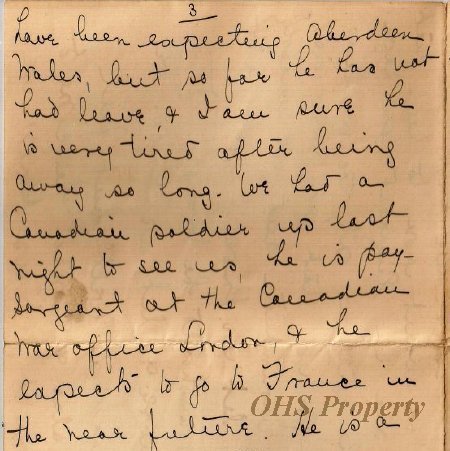 3
have been expecting Aberdeen
Wales, but so far he has not
had leave, & I am sure he
is very tired after being
away so long. We had a
Canadian soldier up last
night to see us, he is pay-
sargeant at the Canadian
War office London, & he
expects to go to France in
the near future. He is a
OHS Property